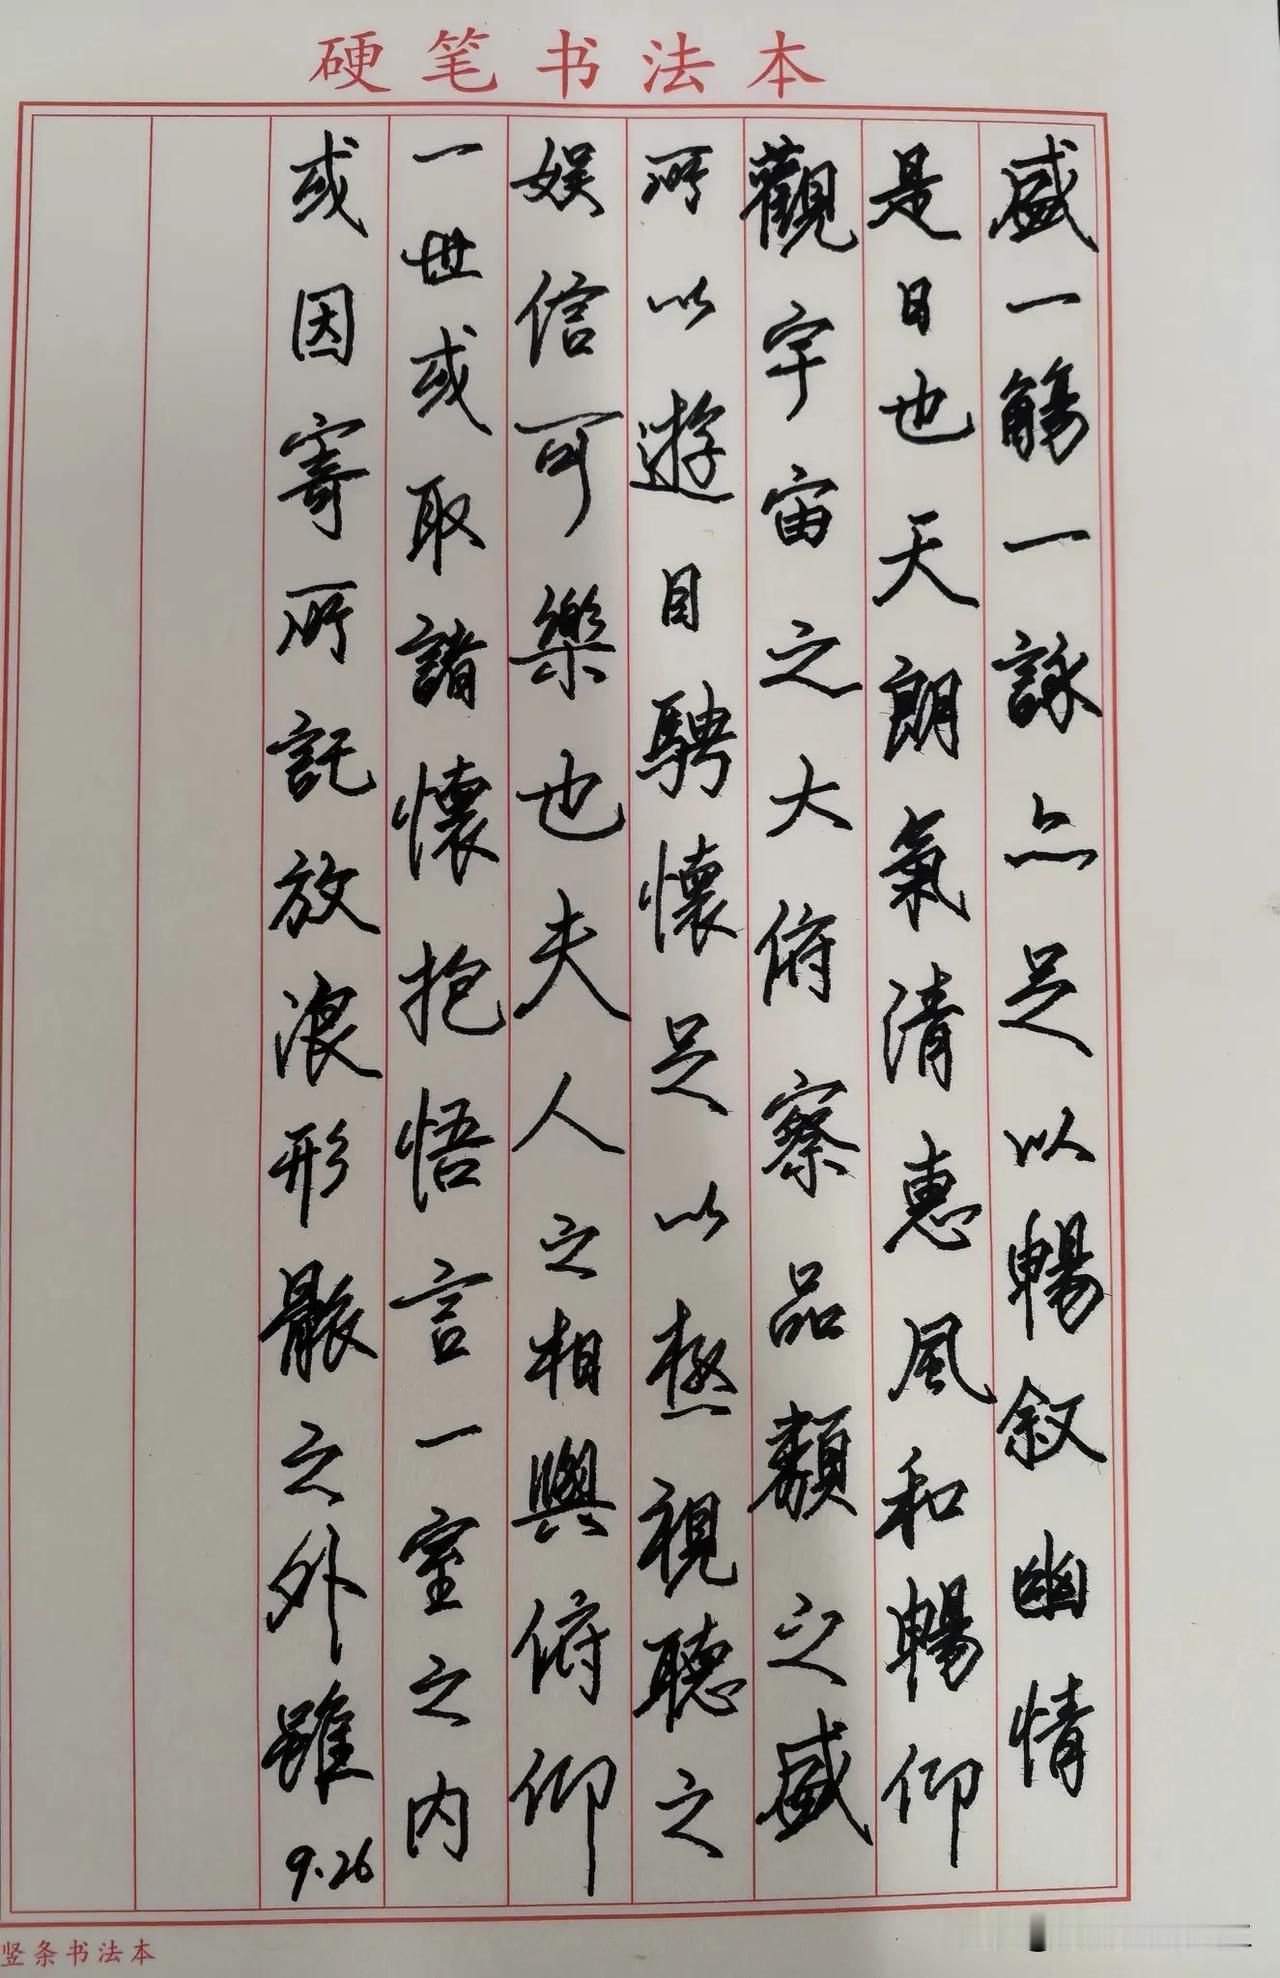 硬笔书法本
盛一觴一詠亦足以暢叙幽情
是日也天朗氣清惠風和暢仰
觀宇宙之大俯察品類之盛
所以遊目騁懷足以極視聽之
娱信可樂也夫人之相與俯仰
一世或取諸懷抱悟言一室之内
或因寄所託放浪形骸之外雖
9.26
竖条书法本